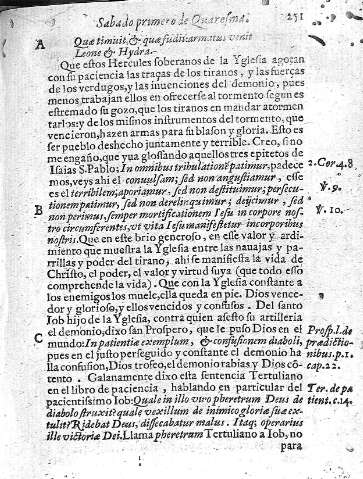 Sabado primero de Quaresma. 251
A Quæ timuit, & quæ fudit: armatus venit
Leone & Hydra.
Que estos Hercules soberanos de la Yglesia agotan
con su paciencia las traças de los tiranos, y las fuerças
de los verdugos, y las inuenciones del demonio, pues
menos trabajan ellos en ofrecerse al tormento segun es
estremado su gozo, que los tiranos en mandar atormen
tarlos: y de los mismos instrumentos del tormento, que
vencieron, hazen armas para su blason y gloria. Esto es
ser pueblo deshecho juntamente y terrible. Creo, si no
me engaño, que yua glossando aquellos tres epitetos de
Isaias S. Pablo: In omnibus tribulationē patimur, padece 2. Cor 4.8.
mos, veys ahi el conuulsam; sed non angustiamur, esse
es el terribilem, aporiamur, sed non destituimur; persecu ℣. 9.
B tionem patimur, sed non derelinquimur; deijcimur, sed
non perimus, semper mortificationem Iesu in corpore nos- ℣. 10.
tro circumferentes, vt vita Iesu manifestetur incorporibus
nostris. Que en este brio generoso, en esse valor y ardi-
miento que muestra la Yglesia entre las nauajas y pa-
rrillas y poder del tirano, ahi se manifiesta la vida de
Christo, el poder, el valor y virtud suya (que todo esso
comprehende la vida). Que con la Yglesia constante a
los enemigos los muele, ella queda en pie. Dios vence-
dor y glorioso, y ellos vencidos y confusos. Del santo
Iob hijo de la Yglesia, contra quien asesto su artilleria
el demonio, dixo san Prospero, que le puso Dios en el Prosp. l. de
C mundo: In patientiæ exemplum, & confusionem diaboli, prædictio-
pues en el justo perseguido y constante el demonio ha nibus. p. 1.
lla confusion, Dios trofeo, el demonio rabias y Dios cō- cap. 22.
tento. Galanamente dixo esta sentencia Tertuliano
en el libro de paciencia, hablando en particular del Ter. de pa
pacientissimo Iob: Quale in illo viro pheretrum Deus de tient. c. 14.
diabolo struxit? quale vexillum de inimico gloriæ suæ ex-
tulit? Ridebat Deus, dissecabatur malus. Itaq; operarius
ille victoriæ Dei. Llama pheretrum Tertuliano a Iob, no
para